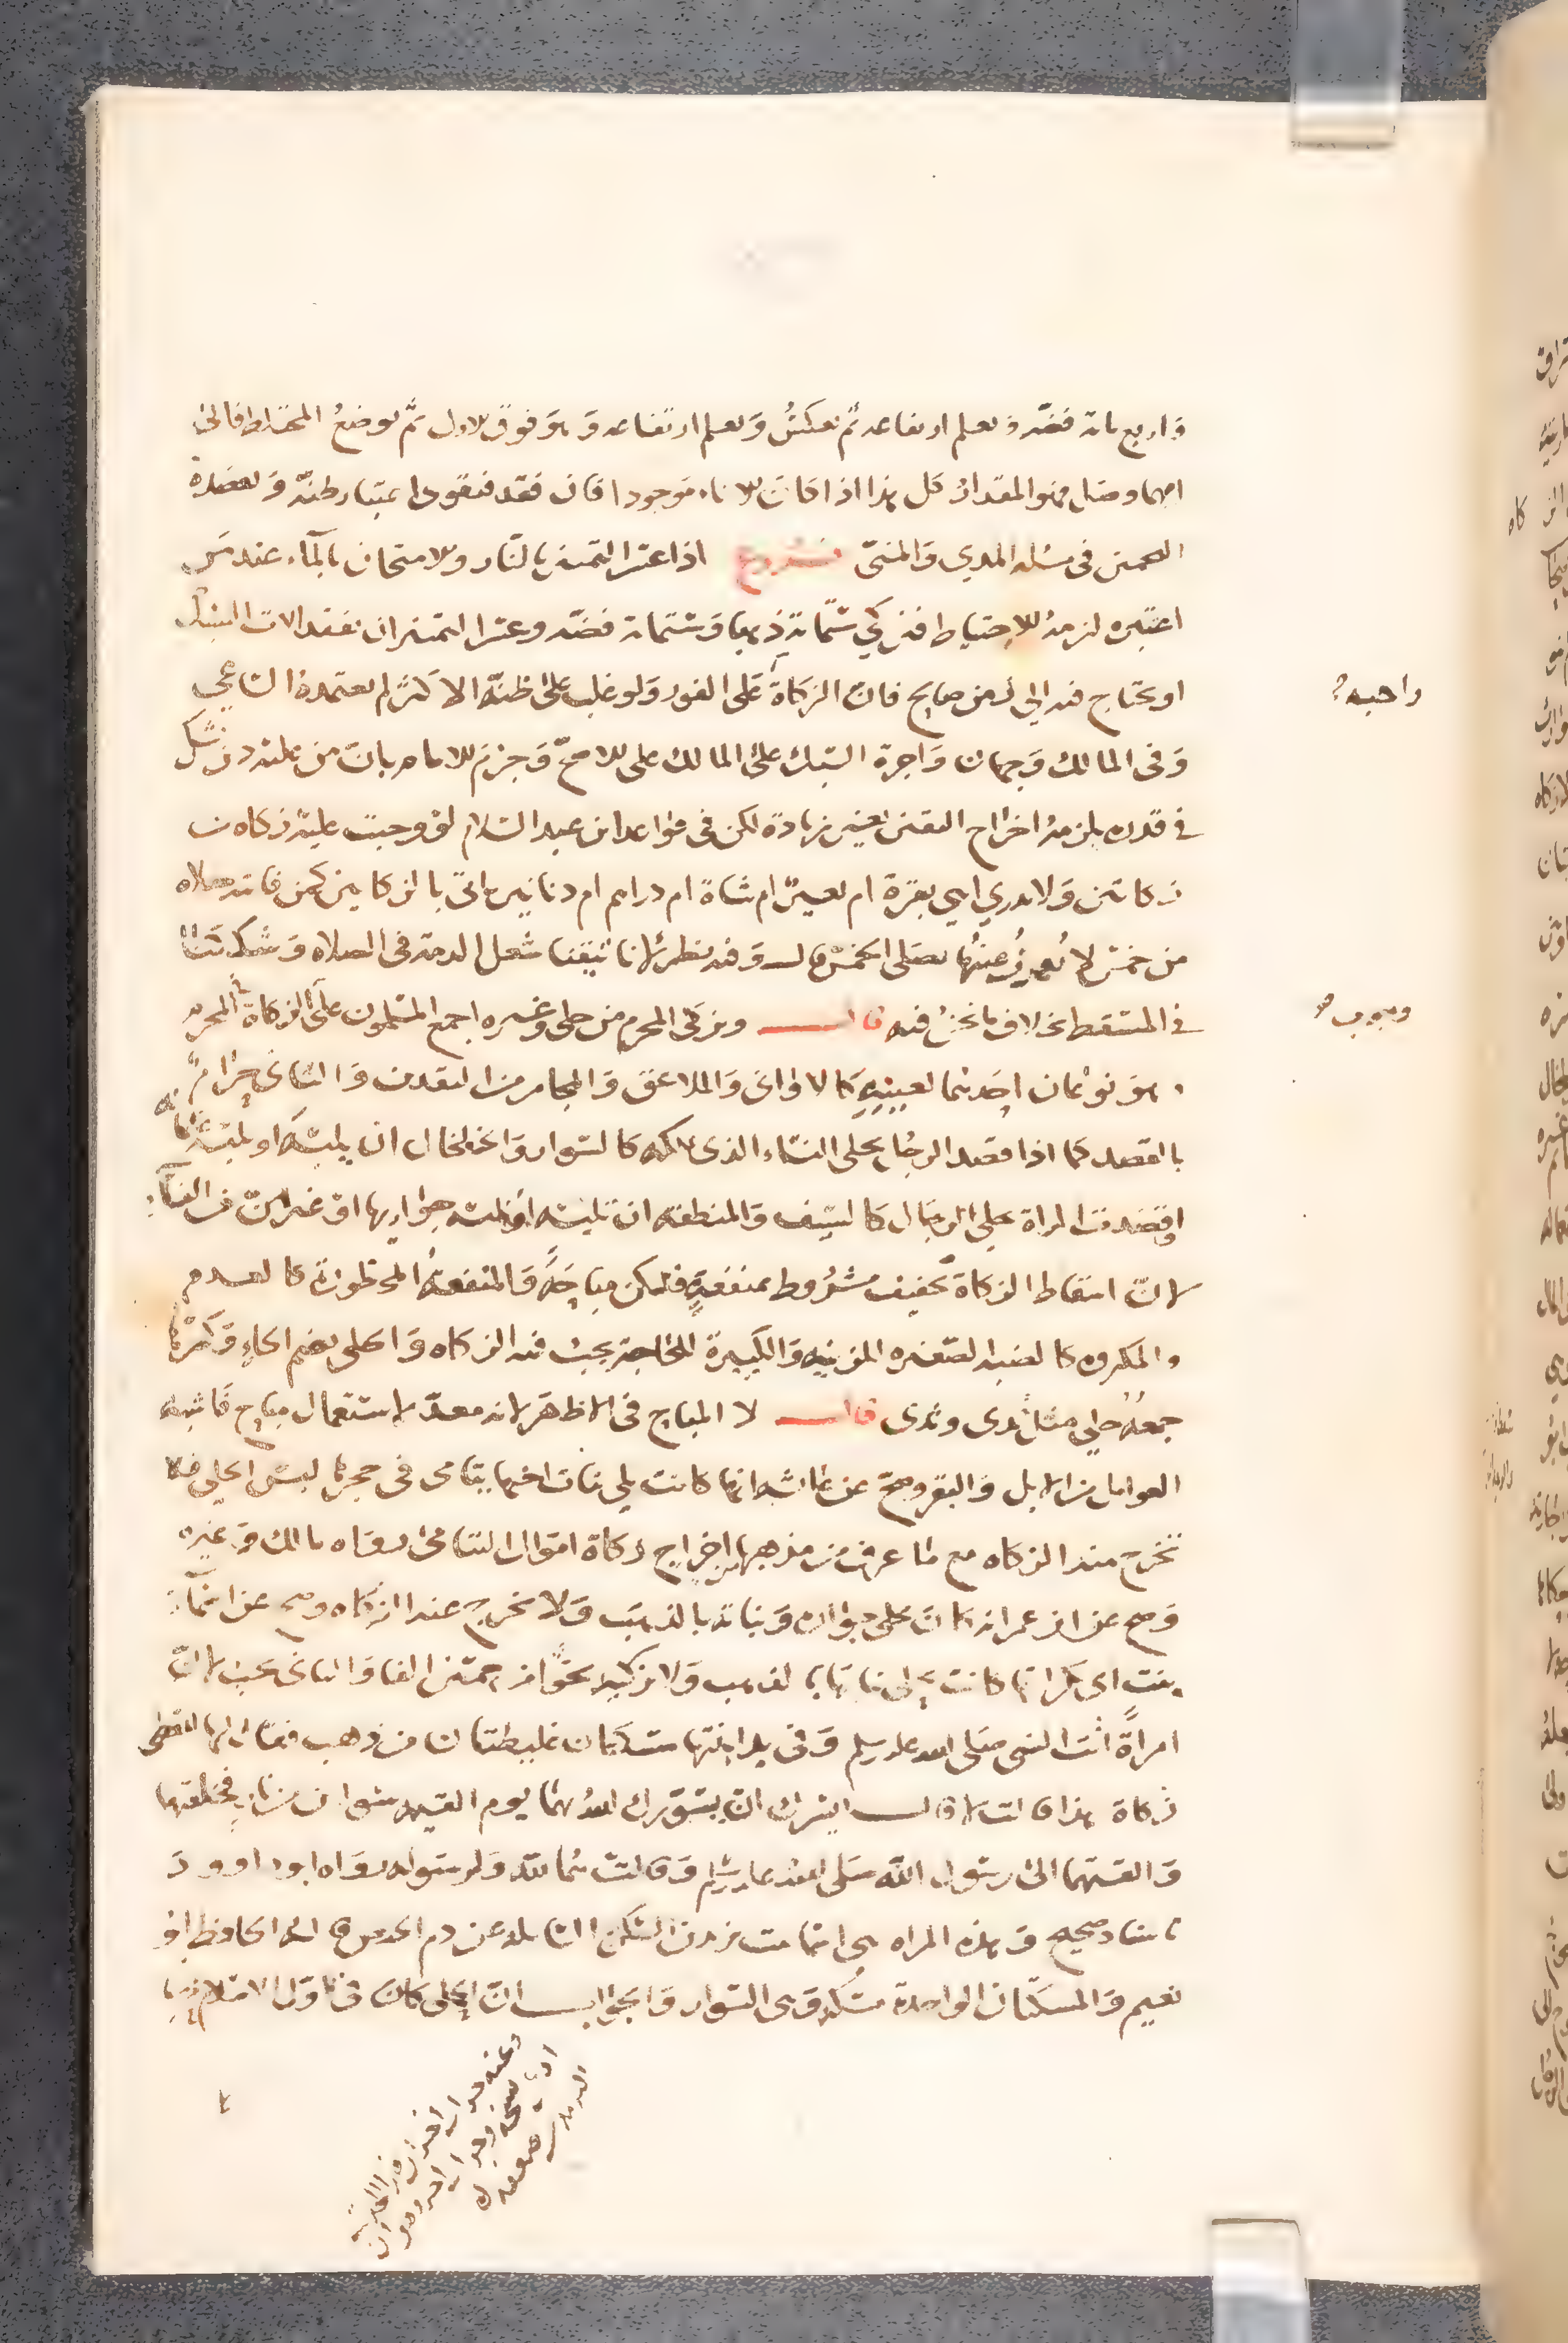 واربع مائة فضة ونعلم ارتفاعه ثم نعكس ونعلم ارتفاعه وهو فوق الاول ثم نوضع المختلط فالى
ايهما وصل فهو المقدار كل هذا اذا كان الاناء موجودا فان فقد فيقوى اعتبار ظنه ويعضده
في مسئلة المذي والمني فروع اذا عسر التمييز بالنار والامتحان بالماء عند من
اعتبره لزمه الاحتياط فيزكي ستمائة ذهبا وستمائة فضة وعسر التمييز ان نفقد الات السبك
او يحتاج فيه الى زمن صالح فان الزكاة على الفور ولو غلب على ظنه الاكثر لم يعتمده الساعي
واجبة
وفي المالك وجهان واجرة السبك على المالك على الاصح وجزم الامام بان من عليه دين شك
في قدره يلزمه اخراج اليقين بغير زيادة لكن في قواعد ابن عبد السلام لو وجبت عليه زكاة من
زكاتين ولا يدري اهي بقرة ام بعير ام شاة ام دراهم ام دنانير اتى بالزكاتين كمن فاتته صلاة
من خمس لا يعرف عينها يصلي الخمس قال وفيه نظر لانا تيقنا شغل الذمة في الصلاة وشككنا
في المسقط بخلاف ما نحن فيه قال ويزكى المحرم من حلي وغيره اجمع المسلمون على الزكاة في المحرم
وجوب
وهو نوعان احدهما لعينه كالاواني والملاعق والمجامر من النقدين والثاني حرام
بالقصد كما اذا قصد الرجل بحلي النساء الذي يملكه كالسوار والخلخال ان يلبسه او يلبسه غلمانه
او قصدت المراة بحلي الرجال كالسيف والمنطقة ان تلبسه او تلبسه جواريها او غيرهن من النساء
لان اسقاط الزكاة تخفيف مشروط بمنفعة فلتكن مباحة والمنفعة المحظورة كالعدم
والمكروه كالضبة الصغيرة للزينة والكبيرة للحاجة يجب فيه الزكاة والحلي بضم الحاء وكسرها
جمعه حلي مثل ثدي وثدى قال لا المباح في الاظهر لانه معد لاستعمال مباح فاشبه
العوامل من الابل والبقر وصح عن عائشة انها كانت تلي بنات اخيها يتامى في حجرها لبس الحلي فلا
تخرج منه الزكاة مع ما عرف من مذهبها من اخراج زكاة اموال اليتامى رواه مالك وغيره
وصح عن ابن عمر انه كان يحلي جواريه وبناته بالذهب ولا يخرج عنه الزكاة وصح عن اسماء
بنت ابي بكر انها كانت تحلي بناتها بالذهب ولا تزكيه نحوا من خمسين الفا والثاني يجب لان
امراة اتت النبي صلى الله عليه وسلم وفي يد ابنتها مسكتان غليظتان من ذهب فقال لها اتعطي
زكاة هذا قالت لا قال ايسرك ان يسورك الله بهما يوم القيمة سوارين من نار فخلعتهما
والقتهما الى رسول الله صلى الله عليه وسلم وقالت هما لله ولرسوله رواه ابو داوود
باسناد صحيح وهذه المراة هي اسما بنت يزيد بن السكن السائلة عن دم الحيض قاله الحافظ ابو
نعيم والمسكتان الواحدة مسكة وهي السوار والجواب ان الحلي كان في اول الاسلام